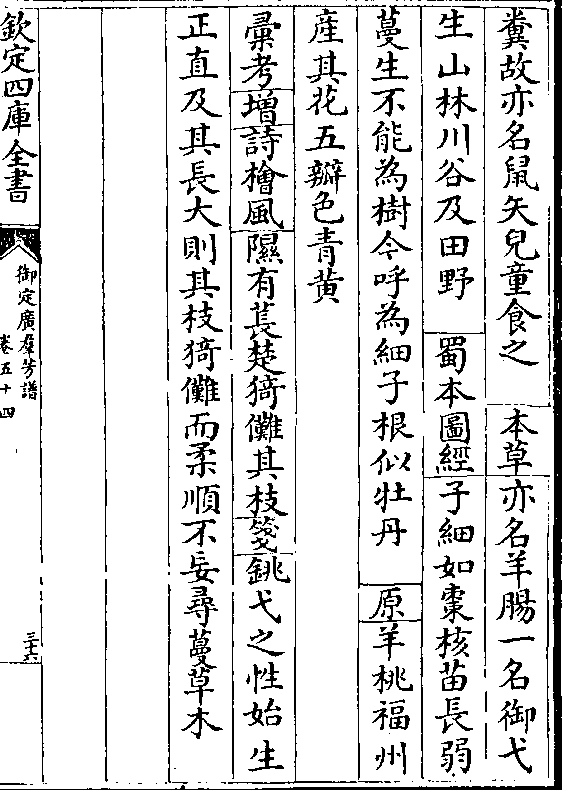 糞故亦名鼠矢兒童食之 本草亦名羊腸一名御弋
生山林川谷及田野 蜀本圖經子細如棗核苗長弱
蔓生不能為樹今呼為細子根似牡丹 原羊桃福州
產其花五瓣色青黄
彚考增詩檜風隰有萇楚猗儺其枝箋銚弋之性始生
正直及其長大則其枝猗儺而柔順不妄尋蔓草木
欽定四庫全書
御定廣羣芳譜
卷五十四
三十六